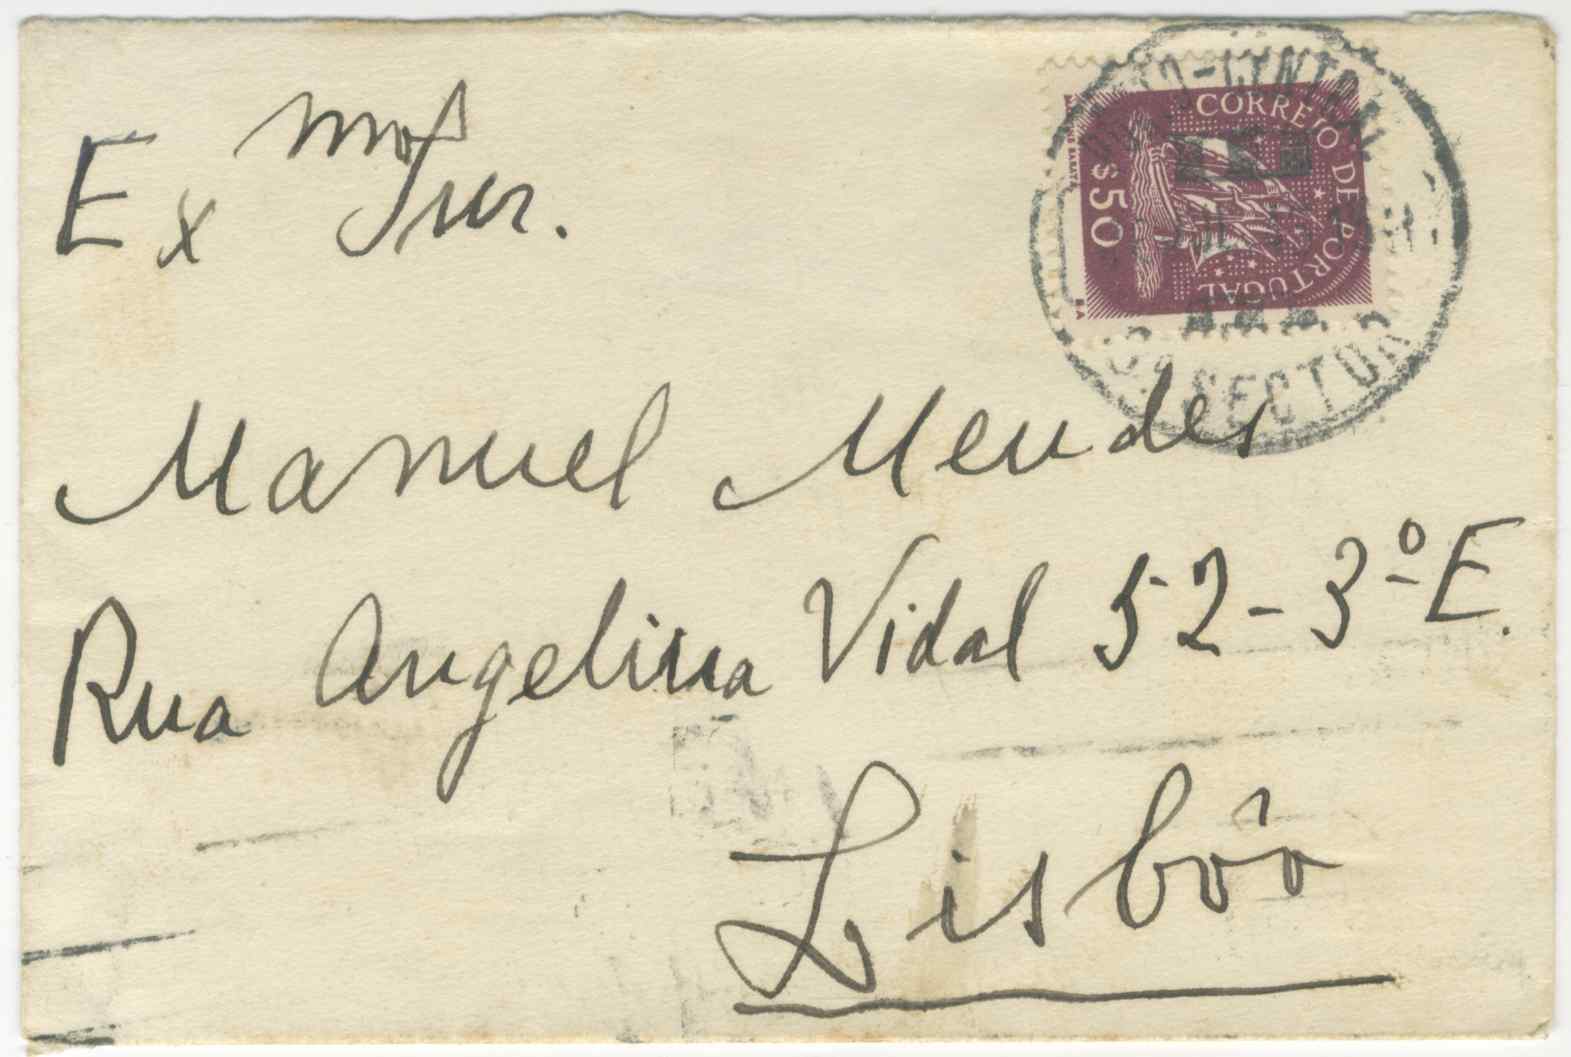 Exmo Snr.
Manuel Mendes
Rua Angelina Vidal 52-3º E.
Lisbôa
CORREIO DE PORTUGAL
$50
SECTOR